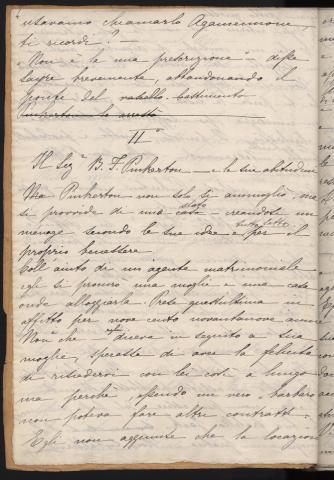 usavamo chiamarlo Agamennone,
ti ricordi? —
"Non è la mia prescrizione" — disse
Sayre brevemente, abbandonando il
ponte del vascello. bastimento
Pinkerton
II°
Il Sigr B. F. Pinkerton — e la sua abitudine
Ma Pinkerton non solo si ammogliò, ma
si provvide di una casa — creandosi un
menage secondo le sue idee e per il
proprio benessere
Coll' aiuto di un agente matrimoniale
egli si procurò una moglie e una casa
onde alloggiarla. Prese quest'ultima in
affitto per nove cento novantanove anni
Non che — diceva in seguito a sua
moglie, sperasse di aver la felicità
di risiedervi con lei così a lungo
ma perchè, essendo un vero barbaro
non poteva fare altri contratti —
Egli non aggiunse che la locazione